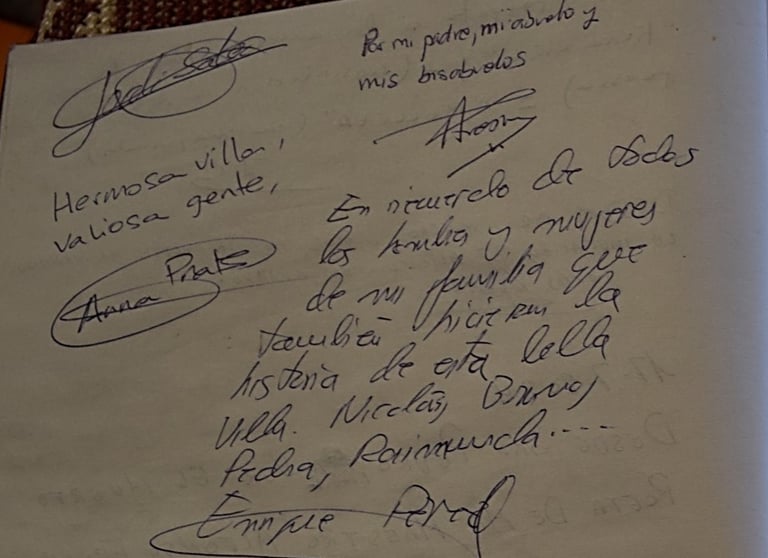 Jordi Salas
Por mi padre, mi abuelo y
mis bisabuelos
Hermosa villa,
valiosa gente,
Anna Prats
En recuerdo de todos
los hombres y mujeres
de mi familia que
también hicieron la
historia de esta bella
villa. Nicolás, Bruno,
Pedra, Raimunda....
Enrique